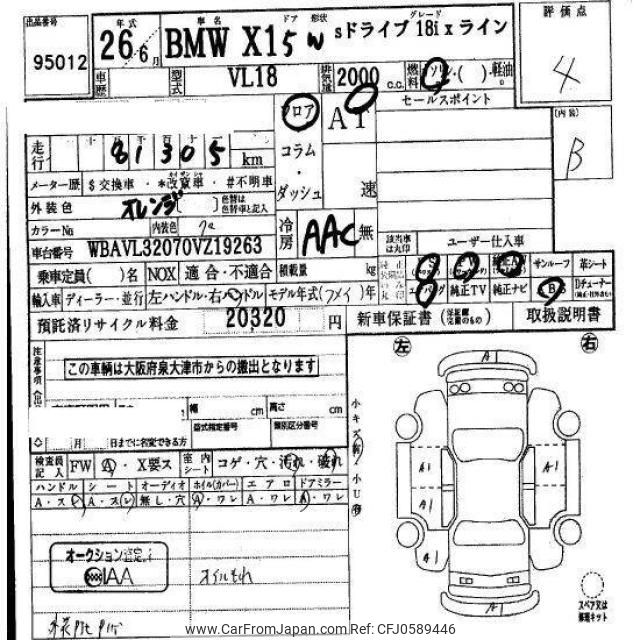 出品番号 95012
年式 26 6月
車名 BMW X1
ドア 形状 5 W
グレード sドライブ 18i xライン
評価点 4
車歴
型式 VL18
排気量 2000 c.c.
燃料 ガソリン・( )・軽油
セールスポイント
(内装) B
走行 81305 km
フロア
コラム
・
ダッシュ
A1
速
メーター歴 $交換車・*改竄車・#不明車
外装色 オレンジ( ) 色替は色替車と記入
カラーNo 内装色
冷房 AAC 無
該当車は丸印
ユーザー仕入車
車台番号 WBAVL32070VZ19263
乗車定員( )名 NOX 適合・不適合 積載量 kg
サンルーフ 革シート
輸入車 ディーラー・並行 左ハンドル・右ハンドル モデル年式(フメイ)年
エアバッグ 純正TV 純正ナビ
預託済リサイクル料金 20320 円
新車保証書 取扱説明書
注意事項
この車輌は大阪府泉大津市からの搬出となります
左 右
幅 cm 高さ cm
型式指定番号 類別区分番号
月 日までに名変できる方
検査員記入 FW A・X要ス 室内シート コゲ・穴・汚れ・破れ
ハンドル シート オーディオ ホイル(カバー) エアロ ドアミラー
A・スレ A・スレ 無し・穴 A・ワレ A・ワレ A・ワレ
小キズ有 小U有
A1
A1 A1
A1
A1
A1
オークション
IAA
オイルもれ
スペア又は修理キット
www.CarFromJapan.com Ref: CFJ0589446